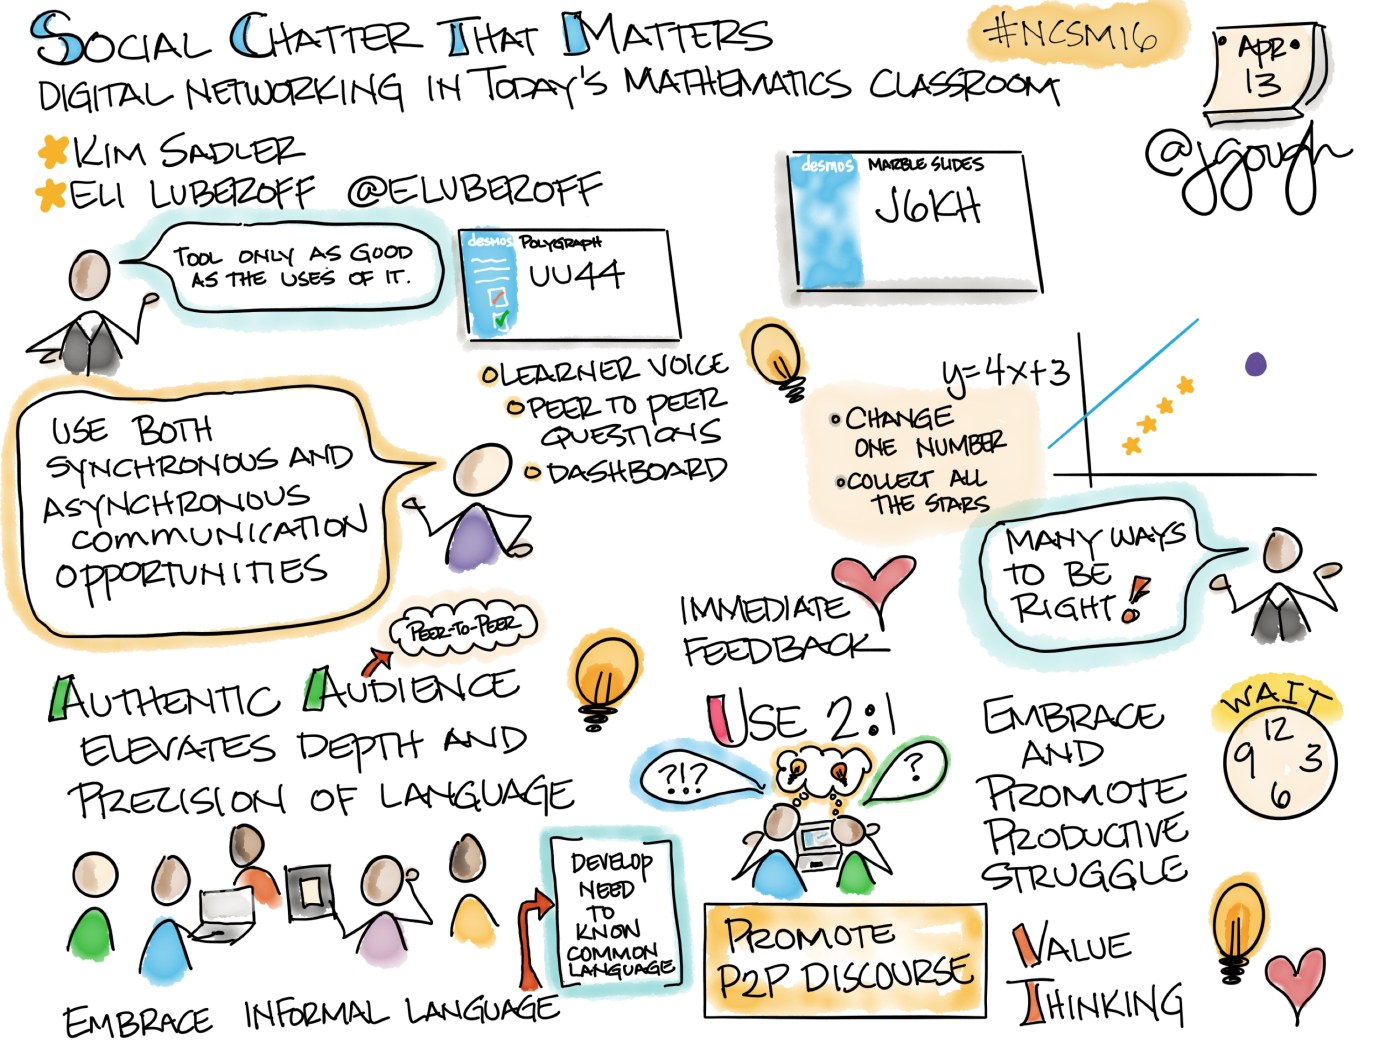 SOCIAL CHATTER THAT MATTERS
DIGITAL NETWORKING IN TODAY'S MATHEMATICS CLASSROOM
#NCSM16
APR
13
@jgough
KIM SADLER
ELI LUBEROFF @ELUBEROFF
TOOL ONLY AS GOOD
AS THE USES OF IT.
desmos POLYGRAPH
UU44
desmos MARBLE SLIDES
J6KH
LEARNER VOICE
PEER TO PEER
QUESTIONS
DASHBOARD
USE BOTH
SYNCHRONOUS AND
ASYNCHRONOUS
COMMUNICATION
OPPORTUNITIES
y=4x+3
CHANGE
ONE NUMBER
COLLECT ALL
THE STARS
MANY WAYS
TO BE
RIGHT!
IMMEDIATE
FEEDBACK
PEER-TO-PEER
AUTHENTIC AUDIENCE
ELEVATES DEPTH AND
PRECISION OF LANGUAGE
DEVELOP
NEED
TO
KNOW
COMMON
LANGUAGE
EMBRACE INFORMAL LANGUAGE
USE 2:1
?!?
?
PROMOTE
P2P DISCOURSE
EMBRACE
AND
PROMOTE
PRODUCTIVE
STRUGGLE
WAIT
12
9 3
6
VALUE
THINKING